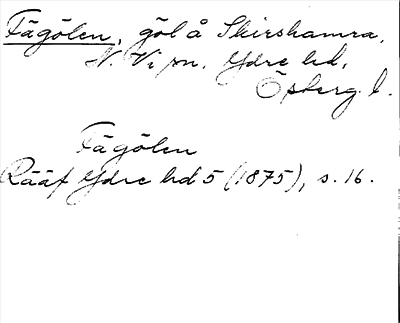 Fägölen, göl å Skirshamra,
N. Vi sn, Ydre hd,
Österg. l.
Fägölen
Rääf Ydre hd 5 (1875), s. 16.